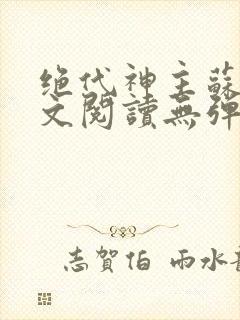 绝代神主蘇
文閱讀無彈
志賀伯 雨水